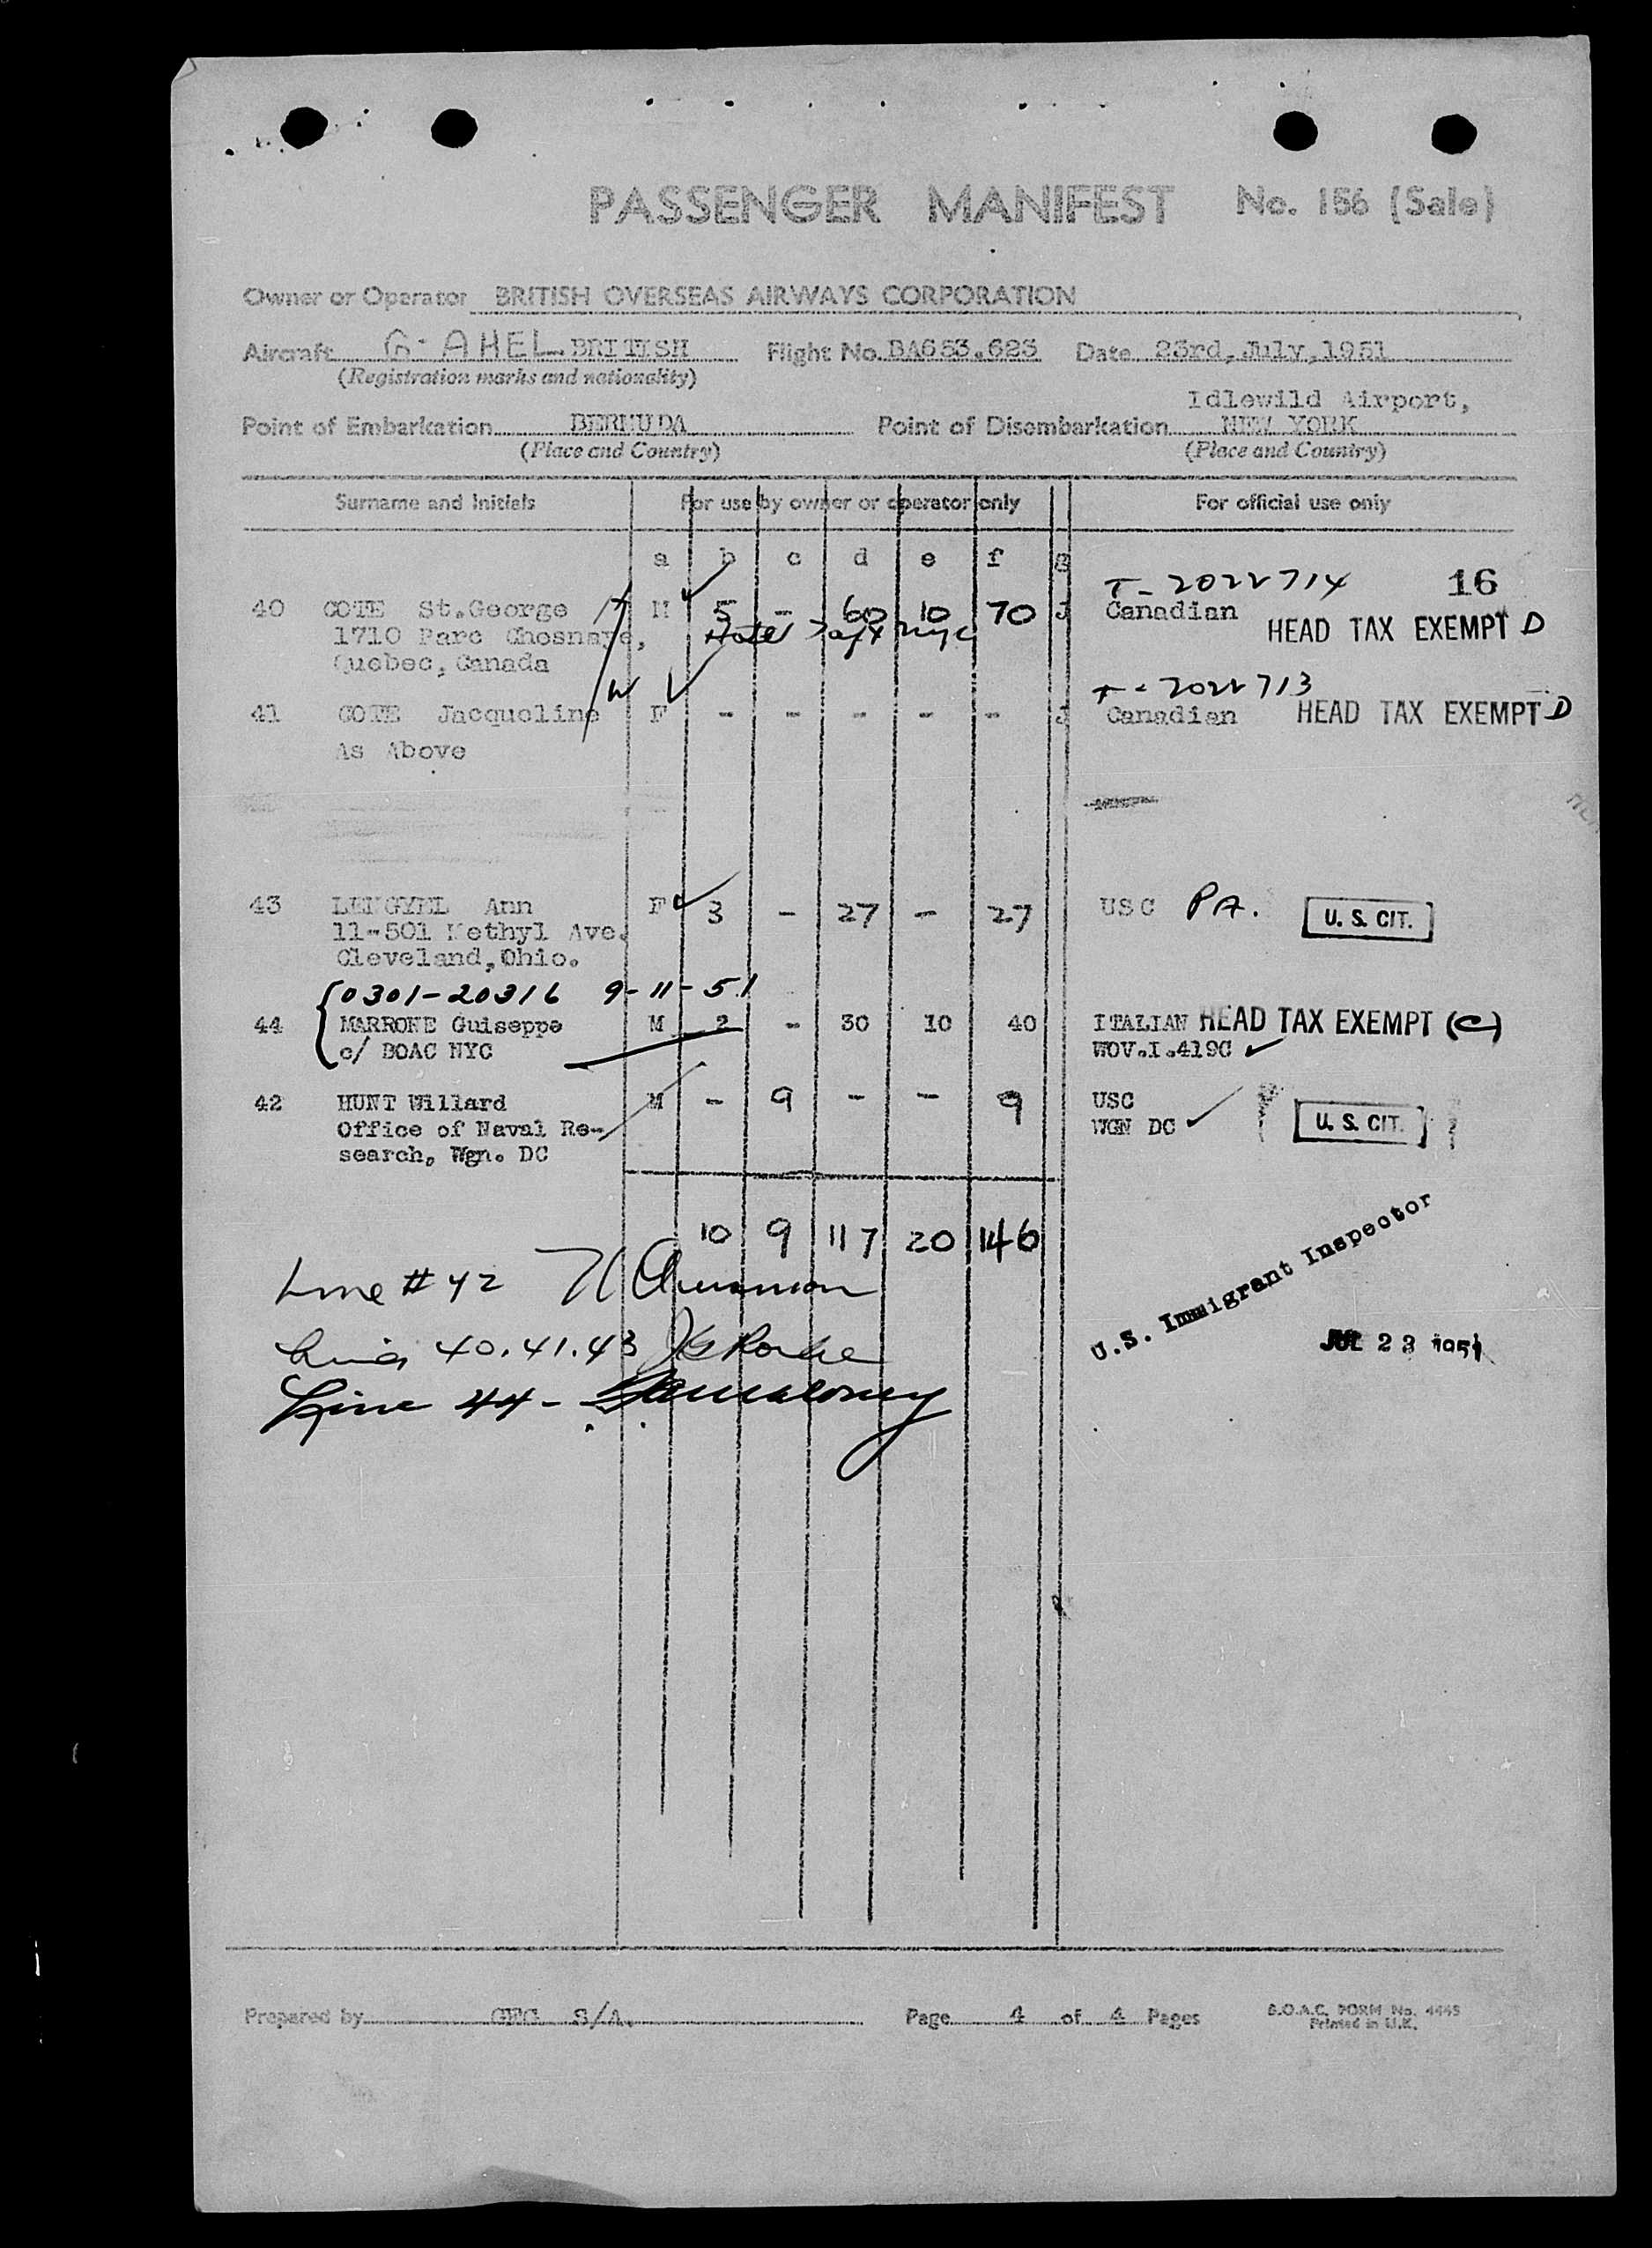 PASSENGER MANIFEST No. 156 (Sale)
Owner or Operator BRITISH OVERSEAS AIRWAYS CORPORATION
Aircraft G-AHEL BRITISH Flight No. BA653.623 Date 23rd, July, 1951
(Registration marks and nationality)
Idlewild Airport,
Point of Embarkation BERMUDA Point of Disembarkation NEW YORK
(Place and Country) (Place and Country)
Surname and Initials For use by owner or operator only For official use only
a b c d e f g
T-2022714 16
40 COTE St.George M 5 - 60 10 70 J Canadian
HEAD TAX EXEMPT D
1710 Parc
Quebec, Canada
T-2022713
41 COTE Jacqueline F - - - - - J Canadian HEAD TAX EXEMPT D
As Above
43 LENGYEL Ann F 3 - 27 - 27 USC PA. U. S. CIT.
11-501 Methyl Ave.
Cleveland, Ohio.
0301-20316 9-11-51
44 MARRONE Guiseppe M 2 - 30 10 40 ITALIAN HEAD TAX EXEMPT (C)
c/ BOAC NYC WOV.I.419C
42 HUNT Willard M - 9 - - 9 USC
Office of Naval Re- WGN DC U. S. CIT.
search, Wgn. DC
10 9 117 20 146
Line # 42
U.S. Immigrant Inspector
Lines 40.41.43
JUL 23 1951
Line 44 -
Prepared by GFC S/A. Page 4 of 4 Pages B.O.A.C. FORM No. 4445
Printed in U.K.